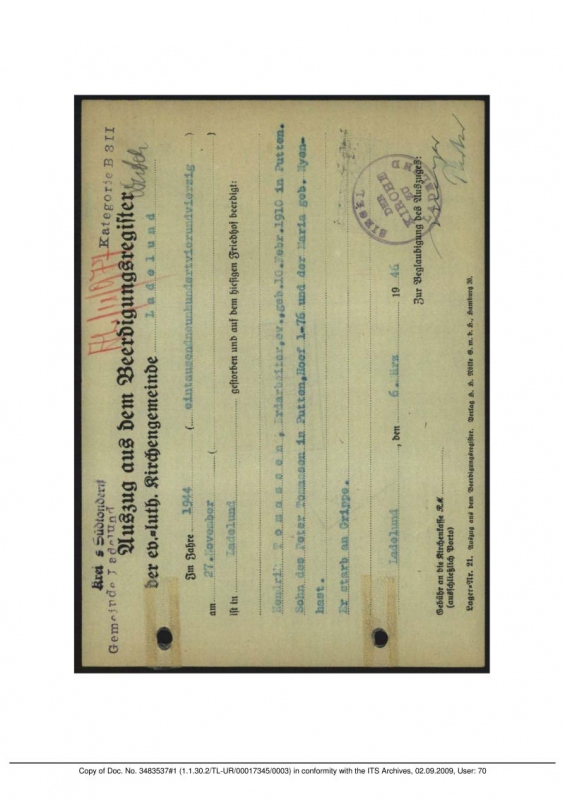 Kreis Südtondern
Gemeinde Ladelund
Kategorie B 3 II
Auszug aus dem Beerdigungsregister
der ev.-luth. Kirchengemeinde Ladelund
Im Jahre 1944 (eintausendneunhundertvierundvierzig)
am 27.November ( )
ist in Ladelund gestorben und auf dem hiesigen Friedhof beerdigt:
Hendrik Tomassen, Erdarbeiter, ev., geb. 10.Febr.1910 in Putten.
Sohn des Peter Tomassen in Putten, Hoof 1-76 und der Maria geb. Hyen-
hast.
Er starb an Grippe.
Ladelund, den 6. März 1946
SIEGEL DER KIRCHE ZU LADELUND
Zur Beglaubigung des Auszuges:
Gebühr an die Kirchenkasse R.M
(ausschließlich Porto)
Lager-Nr. 21. Auszug aus dem Beerdigungsregister. Verlag H. H. Nölke G. m. b. H., Hamburg
Copy of Doc. No. 3483537#1 (1.1.30.2/TL-UR/00017345/0003) in conformity with the ITS Archives, 02.09.2009, User: 70